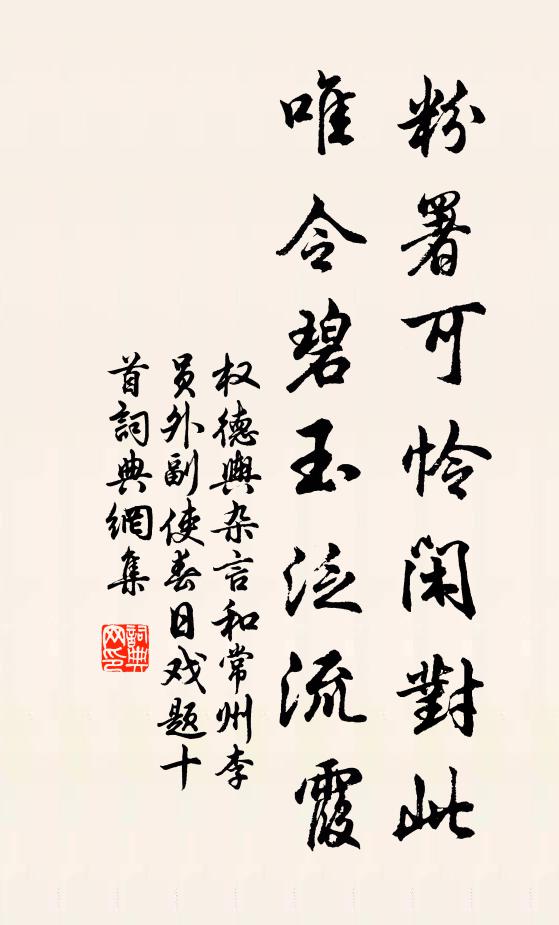 粉署可怜閑對此
唯令碧玉泛流霞
权德輿杂言和常州李
員外副使春日戏题十
首詞典網集
詞典網印